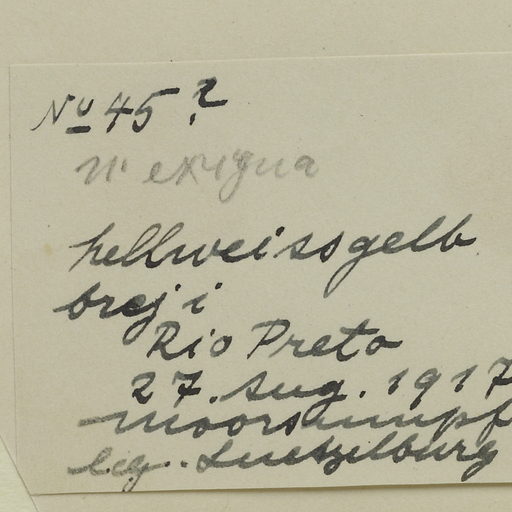 No 45?
exigua
hellweissgelb
breji
Rio Preto
27. Aug. 1917
moorsumpf
leg. Luetzelburg